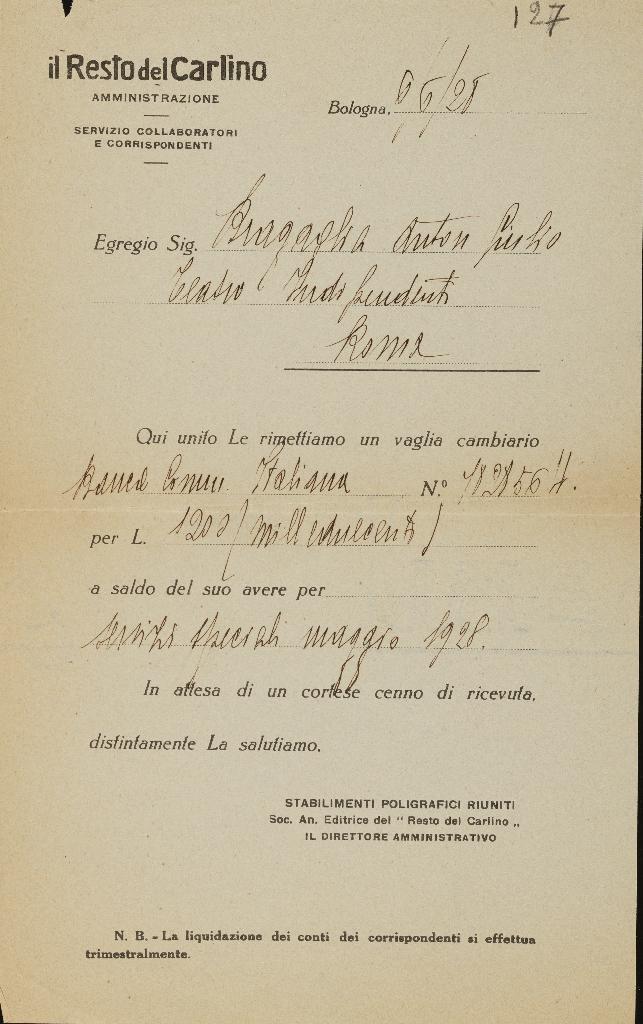 127
il Resto del Carlino
AMMINISTRAZIONE
SERVIZIO COLLABORATORI
E CORRISPONDENTI
Bologna, 9/6/28
Egregio Sig. Bragaglia Anton Giulio
Teatro Indipendenti
Roma
Qui unito Le rimettiamo un vaglia cambiario
Banca Comm. Italiana N.º
per L. 1200 (milleduecento)
a saldo del suo avere per
servizi speciali maggio 1928.
In attesa di un cortese cenno di ricevuta,
distintamente La salutiamo.
STABILIMENTI POLIGRAFICI RIUNITI
Soc. An. Editrice del " Resto del Carlino „
IL DIRETTORE AMMINISTRATIVO
N. B. - La liquidazione dei conti dei corrispondenti si effettua
trimestralmente.